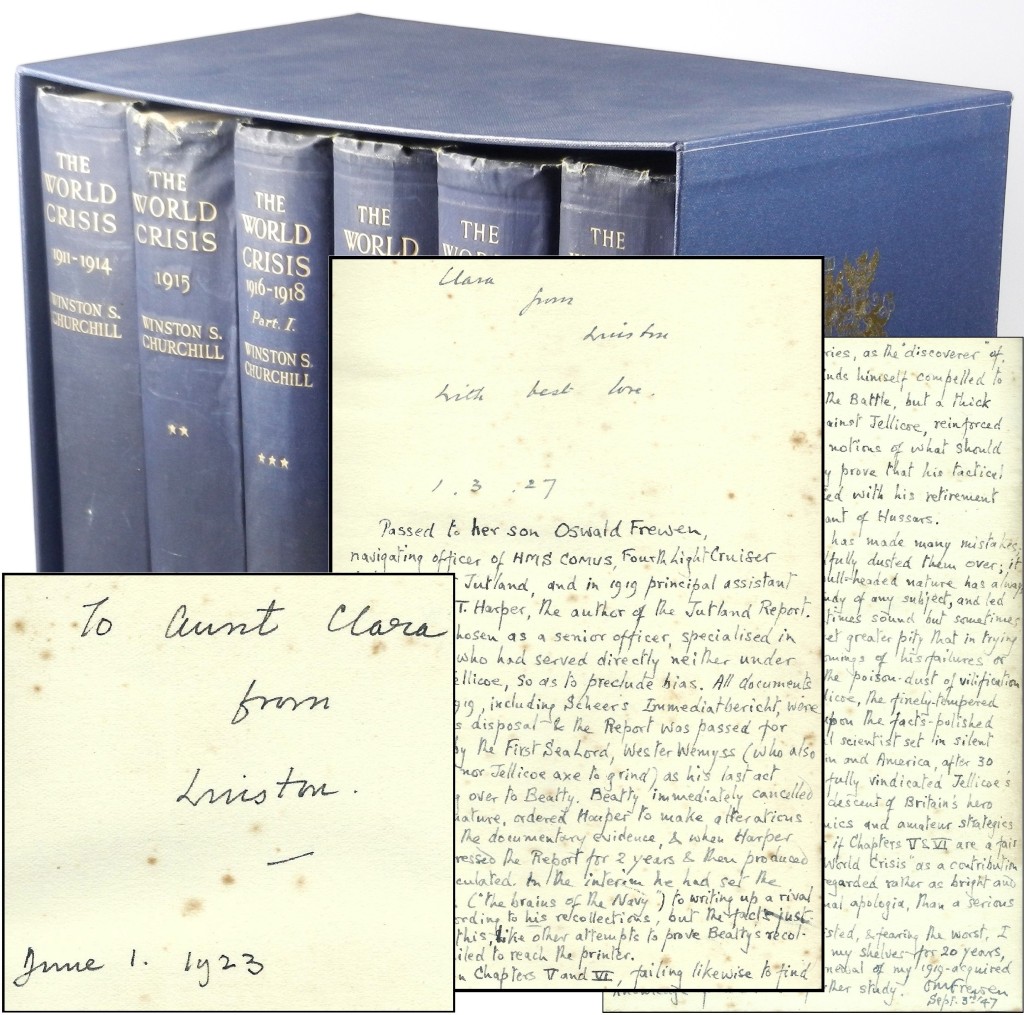 THE
WORLD
CRISIS
1911-1914
WINSTON S.
CHURCHILL
THE
WORLD
CRISIS
1915
WINSTON S.
CHURCHILL
**
THE
WORLD
CRISIS
1916-1918
Part. I.
WINSTON S.
CHURCHILL
***
THE
WORLD
THE
THE
Clara
from
Winston
with best love.
1.3.27
Passed to her son Oswald Frewen,
navigating officer of HMS COMUS, Fourth Light Cruiser
Jutland, and in 1919 principal assistant
T. Harper, the author of the Jutland Report.
hosen as a senior officer, specialised in
who had served directly neither under
ellicoe, so as to preclude bias. All documents
919, including Scheer's Immediatbericht, were
s disposal & the Report was passed for
by the First Sea Lord, Wester Wemyss (who also
nor Jellicoe axe to grind) as his last act
g over to Beatty. Beatty immediately cancelled
nature, ordered Harper to make alterations
the documentary evidence, & when Harper
ressed the Report for 2 years & then produced
culated. In the interim he had set the
("the brains of the Navy") to writing up a rival
ording to his recollections, but the facts just
this, like other attempts to prove Beatty's recol-
iled to reach the printer.
n Chapters V and VI, failing likewise to find
To Aunt Clara
from
Winston.
June 1. 1923
ries, as the "discoverer" of
nds himself compelled to
the Battle, but a thick
ainst Jellicoe, reinforced
notions of what should
y prove that his tactical
ed with his retirement
ant of Hussars.
has made many mistakes
fully dusted them over; it
ull-headed nature has alway
udy of any subject, and led
times sound but sometimes
et greater pity that in trying
omings of his failures or
the poison-dust of vilification
licoe, the finely-tempered
upon the facts-polished
l scientist set in silent
in and America, after 30
fully vindicated Jellicoe's
descent of Britain's hero
ics and amateur strategists
if Chapters V & VI are a fair
World Crisis" as a contribution
egarded rather as bright and
nal apologia, than a serious
sted, & fearing the worst, I
my shelves for 20 years,
newal of my 1919-acquired
knowledge
ther study. OM Frewen
Sept. 3rd/47